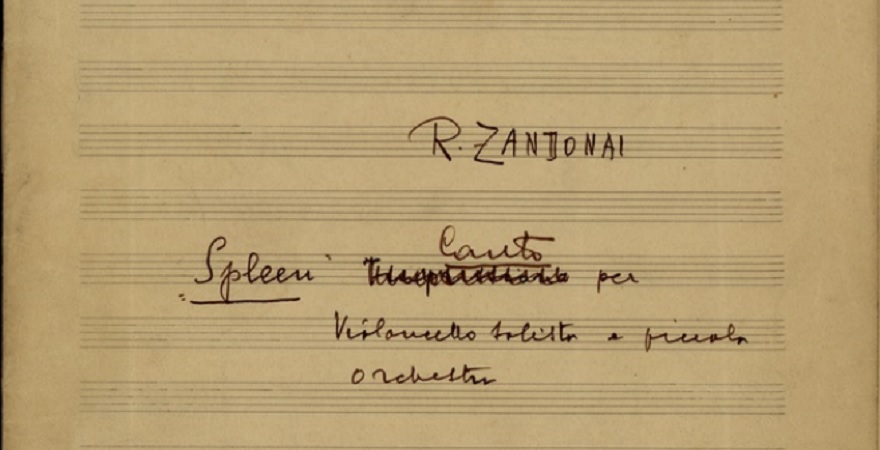 R. ZANDONAI
Canto
"Spleen" per
Violoncello solista e piccola
orchestra